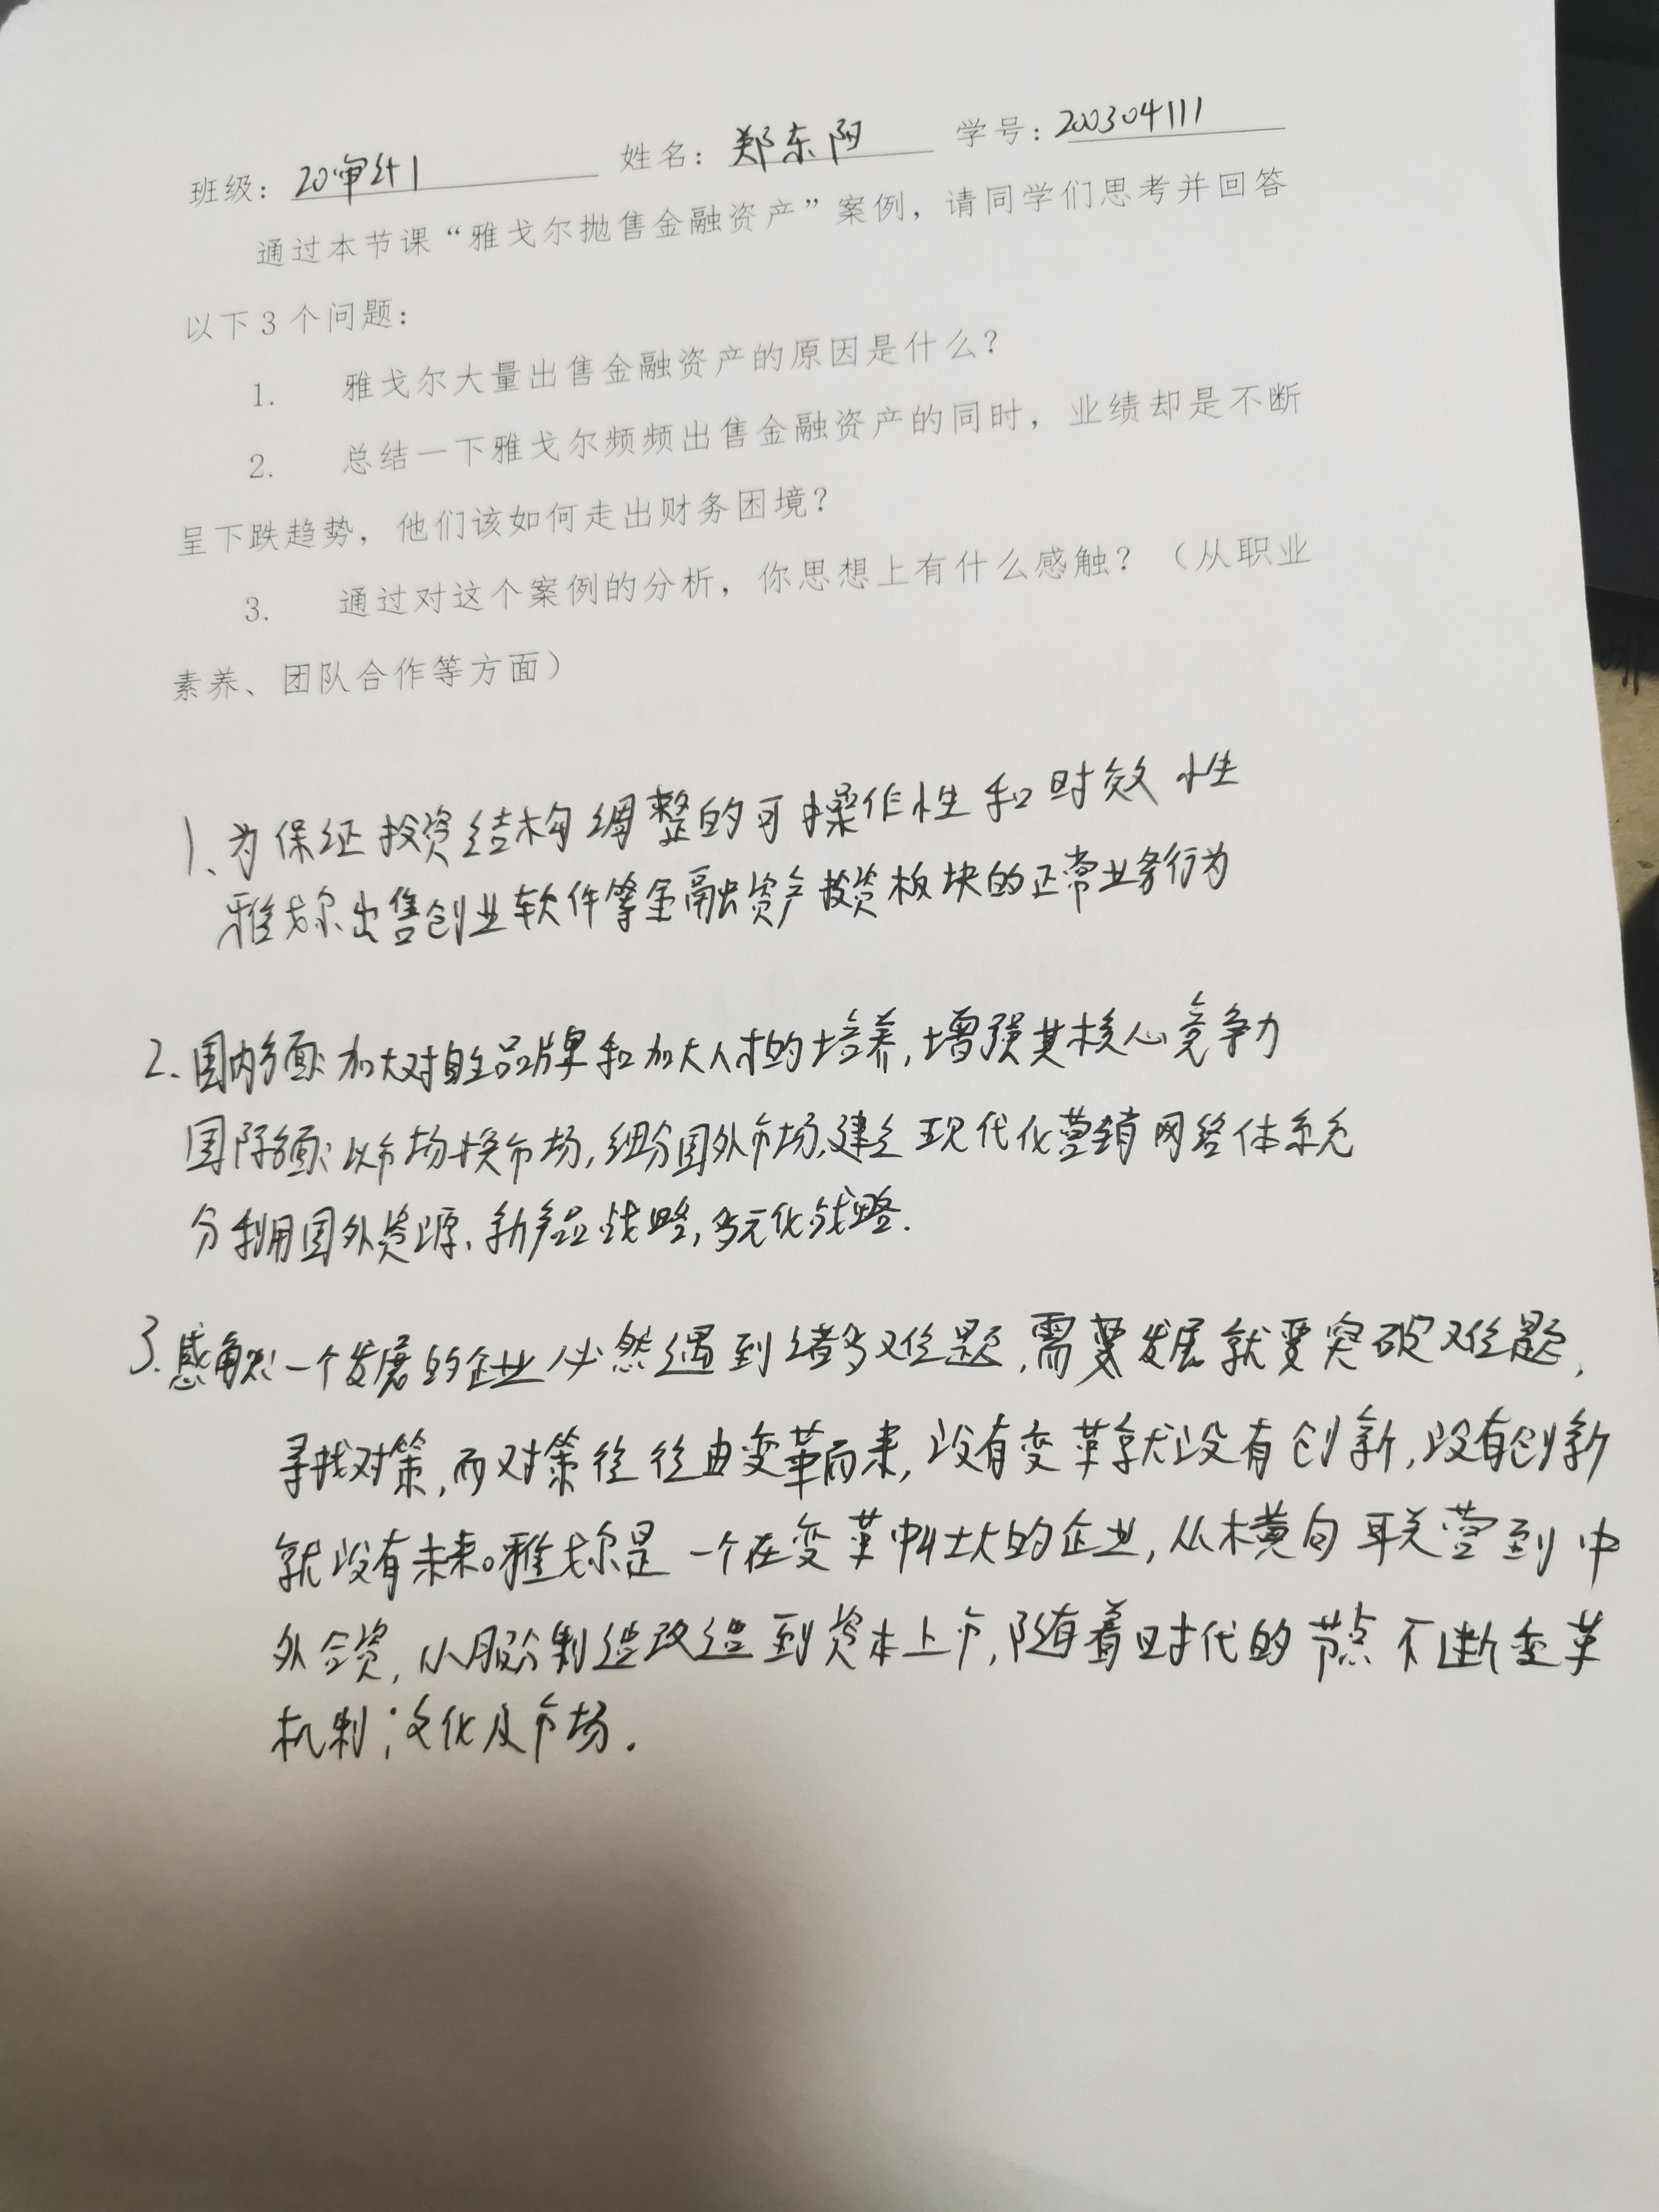 班级：20审计1 姓名：郑东阳 学号：200304111
通过本节课“雅戈尔抛售金融资产”案例，请同学们思考并回答
以下3个问题：
1. 雅戈尔大量出售金融资产的原因是什么？
2. 总结一下雅戈尔频频出售金融资产的同时，业绩却是不断
呈下跌趋势，他们该如何走出财务困境？
3. 通过对这个案例的分析，你思想上有什么感触？（从职业
素养、团队合作等方面）
1、为保证投资结构调整的可操作性和时效性
雅戈尔出售创业软件等金融资产投资板块的正常业务行为
2、国内方面：加大对自主品牌和加大人才的培养，增强其核心竞争力
国际方面：以市场换市场，细分国外市场、建立现代化营销网络体系充
分利用国外资源、新产品战略，多元化战略．
3．感触：一个发展的企业必然遇到诸多难题，需要发展就要突破难题，
寻找对策，而对策往往由变革而来，没有变革就没有创新，没有创新
就没有未来。雅戈尔是一个在变革中壮大的企业，从横向联营到中
外合资，从股份制造改造到资本上市，随着时代的节点不断变革
机制；文化及市场．